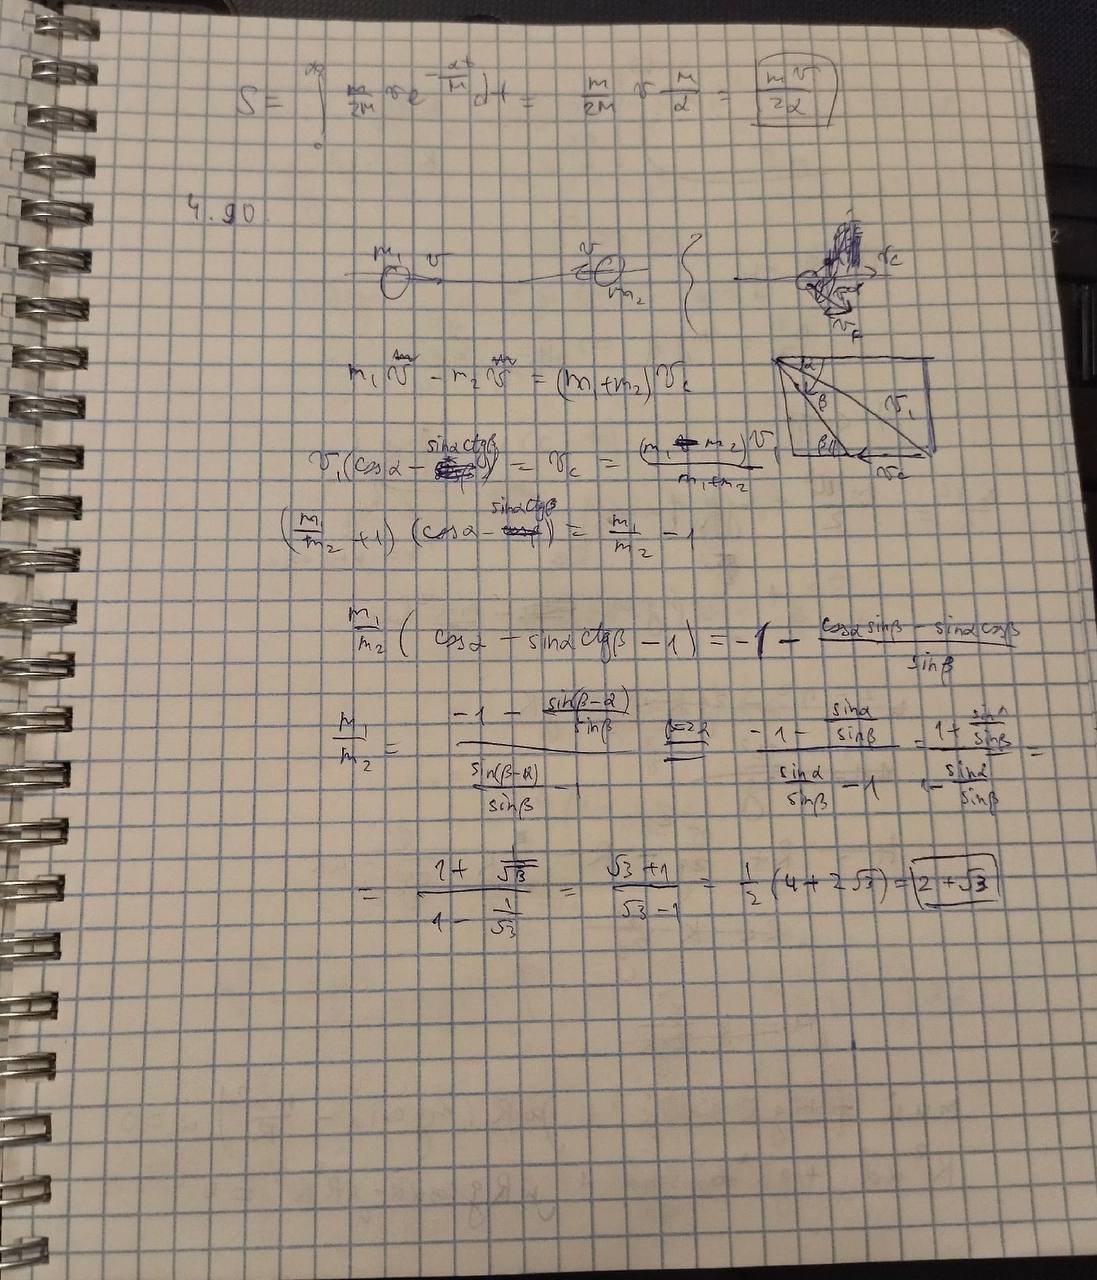 S = ∫₀^∞ m/2M v e^(-αt/M) dt = m/2M v M/α = mv/2α
4.90.
m₁ v v m₂ v_c
m₁v - m₂v = (m₁+m₂)v_c
α β v₁ β v_c
v₁(cosα - sinα ctgβ) = v_c = (m₁ - m₂)v₁/(m₁+m₂)
(m₁/m₂ + 1) (cosα - sinα ctgβ) = m₁/m₂ - 1
m₁/m₂ ( cosα - sinα ctgβ - 1) = -1 - (cosα sinβ - sinα cosβ)/sinβ
m₁/m₂ = (-1 - sin(β-α)/sinβ)/(sin(β-α)/sinβ - 1) β=2α (-1 - sinα/sinβ)/(sinα/sinβ - 1) = (1 + sinα/sinβ)/(1 - sinα/sinβ) =
= (1 + 1/√3)/(1 - 1/√3) = (√3+1)/(√3-1) = 1/2 (4 + 2√3) = 2 + √3